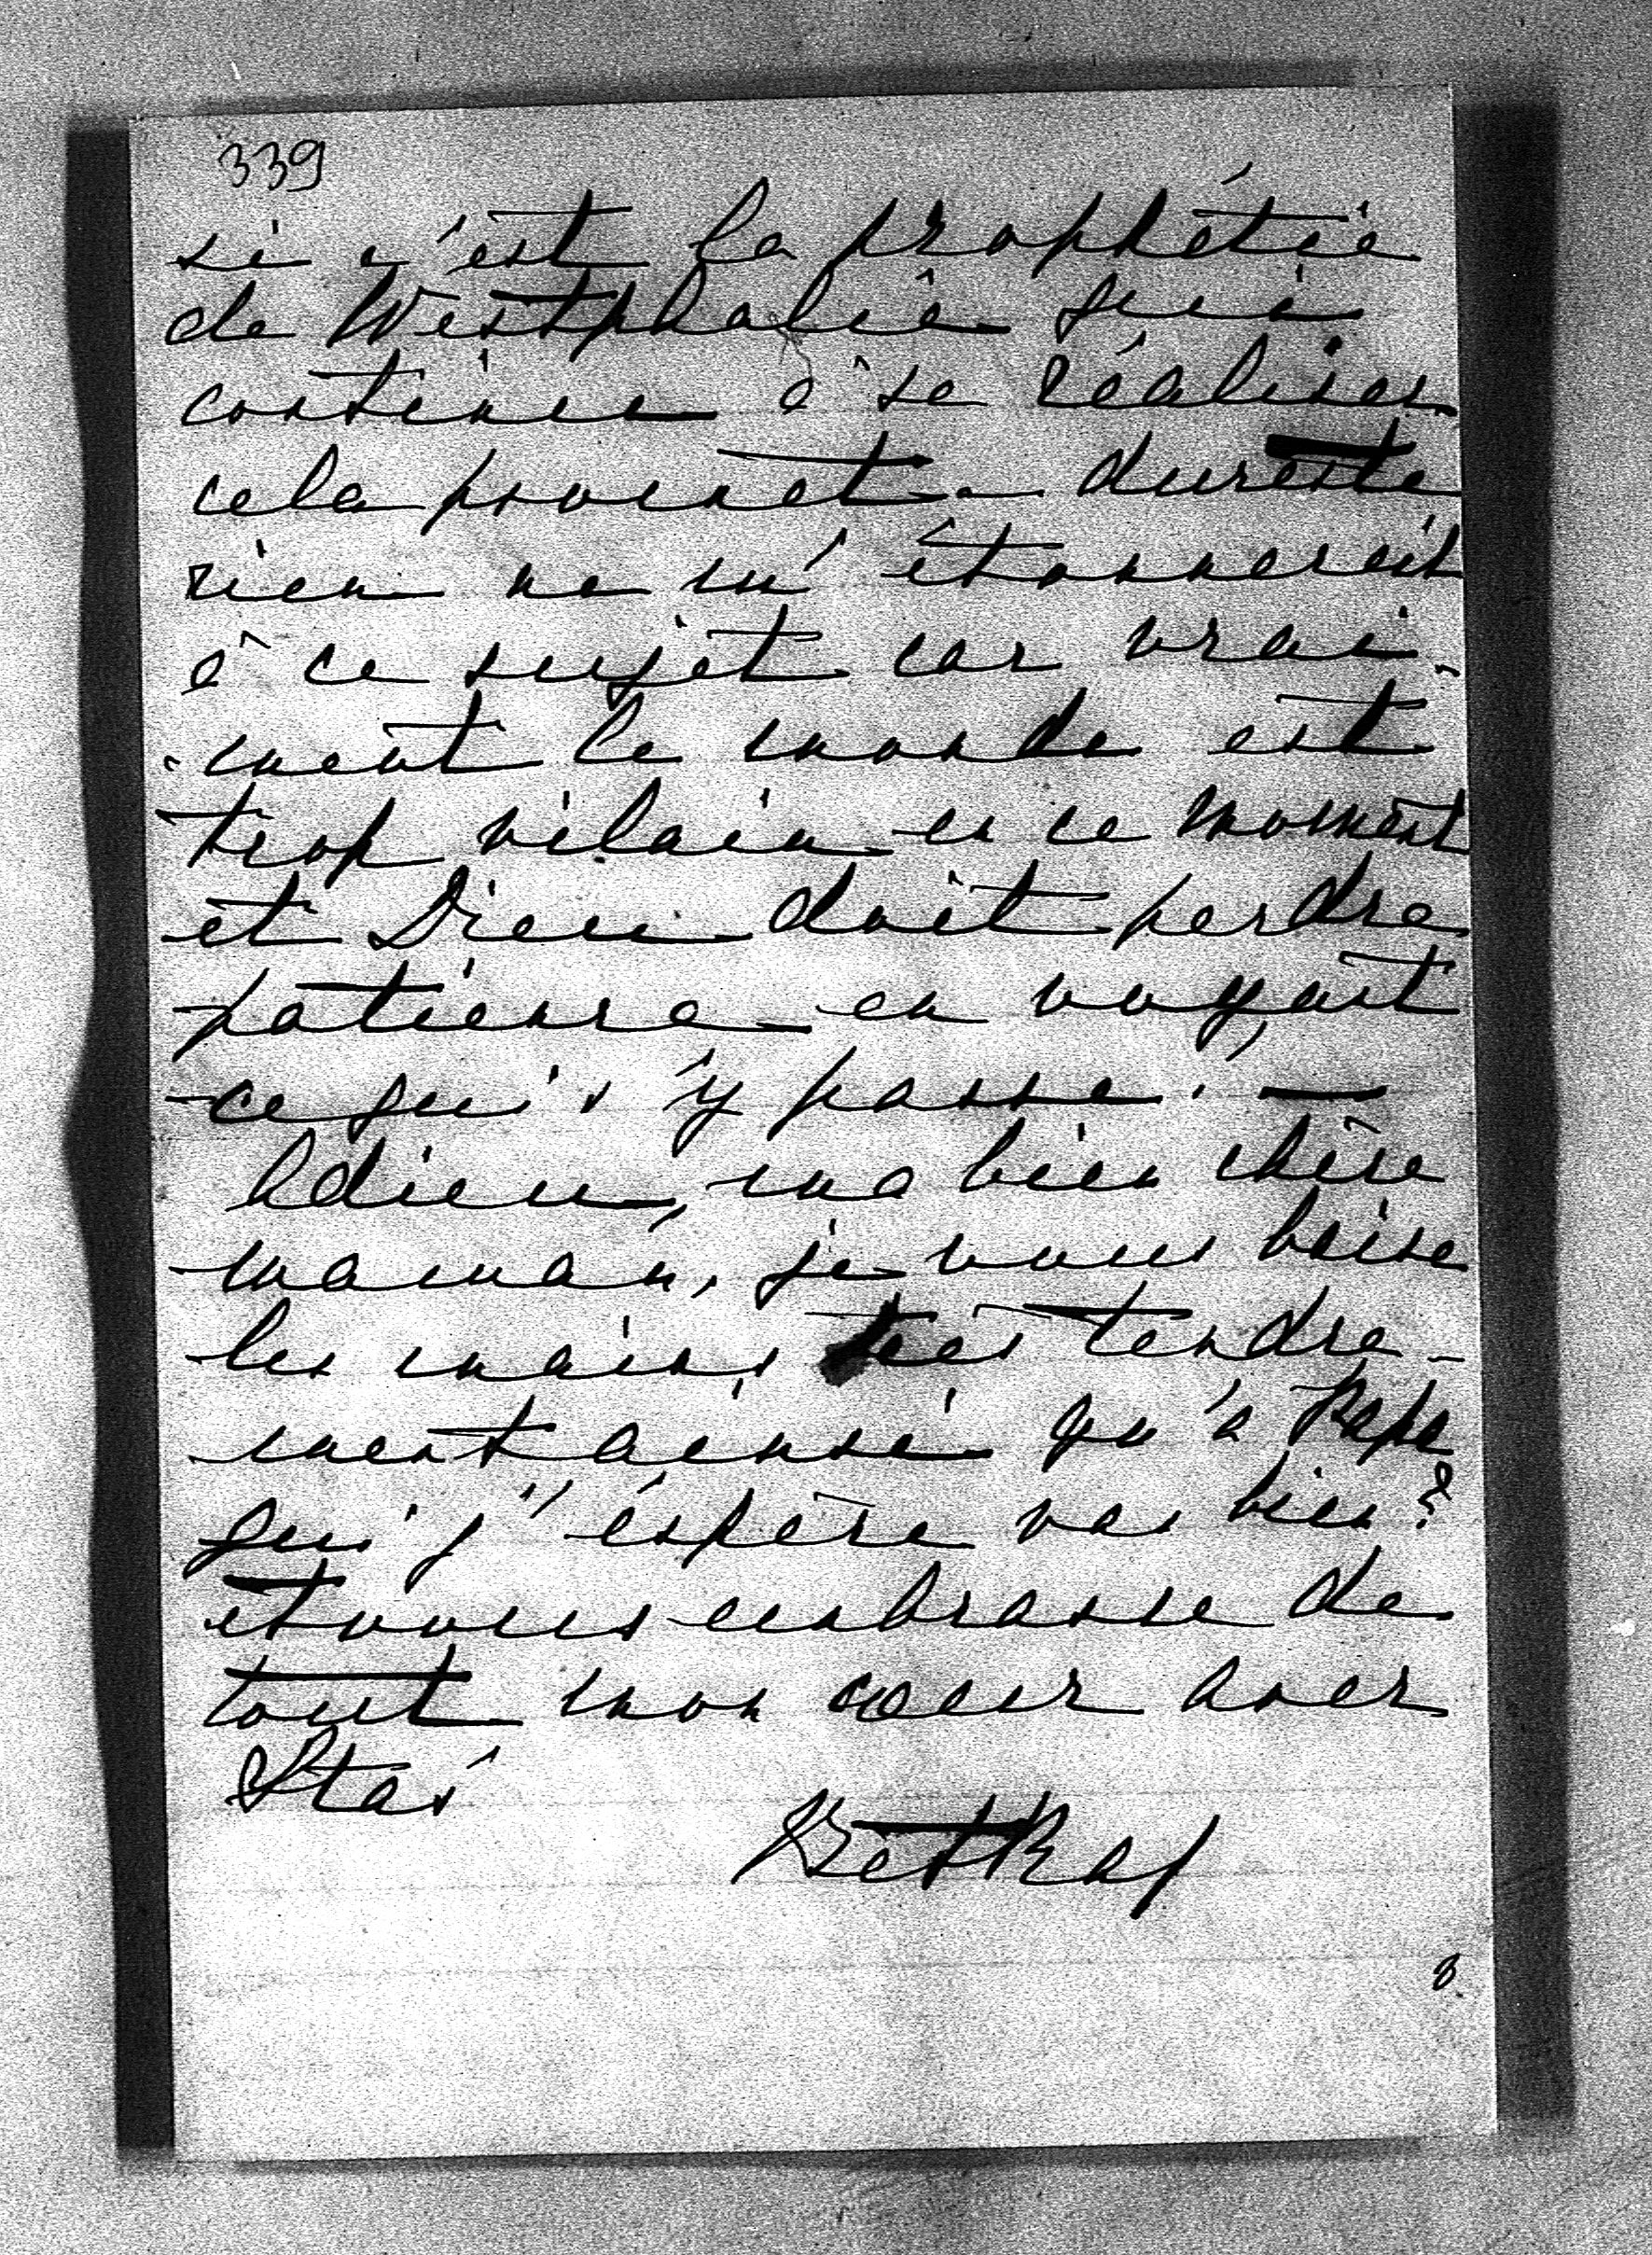 339
si c'est la prophétie
de Westphalie qui
continue à se réaliser
cela promet – dureste
rien ne m'étonnerait
à ce sujet car vrai-
-ment le monde est
trop vilain en ce moment
et Dieu doit perdre
patience en voyant
ce qui s'y passe. —
Adieu, ma bien chère
maman, je vous baise
les mains très tendre-
ment ainsi qu'à Papa
qui j'espère vas bien?
et vous embrasse de
tout mon cœur avec
Stas
8.